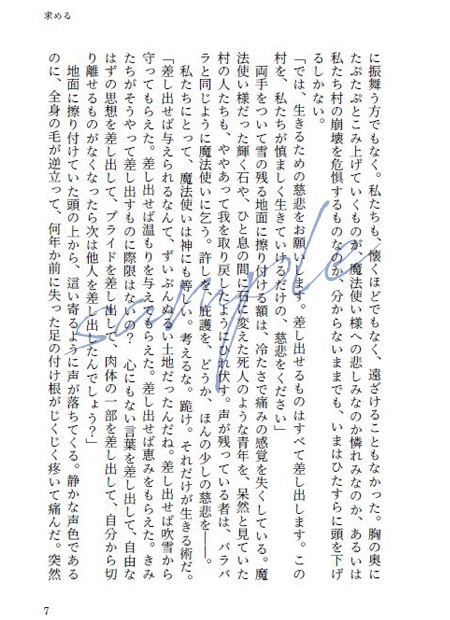 求める
に振舞う方でもなく。私たちも、懐くほどでもなく、遠ざけることもなかった。胸の奥に
たぷたぷとこみ上げていくものが、魔法使い様への悲しみなのか憐れみなのか、あるいは
私たち村の崩壊を危惧するものなのか、分からないままでも、いまはひたすらに頭を下げ
るしかない。
「では、生きるための慈悲をお願いします。差し出せるものはすべて差し出します。この
村を、私たちが慎ましく生きていけるだけの、慈悲をください」
両手をついて雪の残る地面に擦り付ける額は、冷たさで痛みの感覚を失くしている。魔
法使い様だった輝く石や、ひと息の間に石に変えた死人のような青年を、呆然と見ていた
村の人たちも、ややあって我を取り戻したようにひれ伏す。声が残っている者は、バラバ
ラと同じように魔法使いに乞う。許しを、庇護を、どうか、ほんの少しの慈悲を――。
私たちにとって、魔法使いは神にも等しい。考えるな。跪け。それだけが生きる術だ。
「差し出せば与えられるなんて、ずいぶんぬるい土地だったんだね。差し出せば吹雪から
守ってもらえた。差し出せば温もりを与えてもらえた。差し出せば恵みをもらえた。きみ
たちがそうやって差し出すものに際限はないの？　心にもない言葉を差し出して、自由な
はずの思想を差し出して、プライドを差し出して、肉体の一部を差し出して、自分から切
り離せるものがなくなったら次は他人を差し出したんでしょう？」
地面に擦り付けていた頭の上から、這い寄るように声が落ちてくる。静かな声色である
のに、全身の毛が逆立って、何年か前に失った足の付け根がじくじく疼いて痛んだ。突然
sample
7